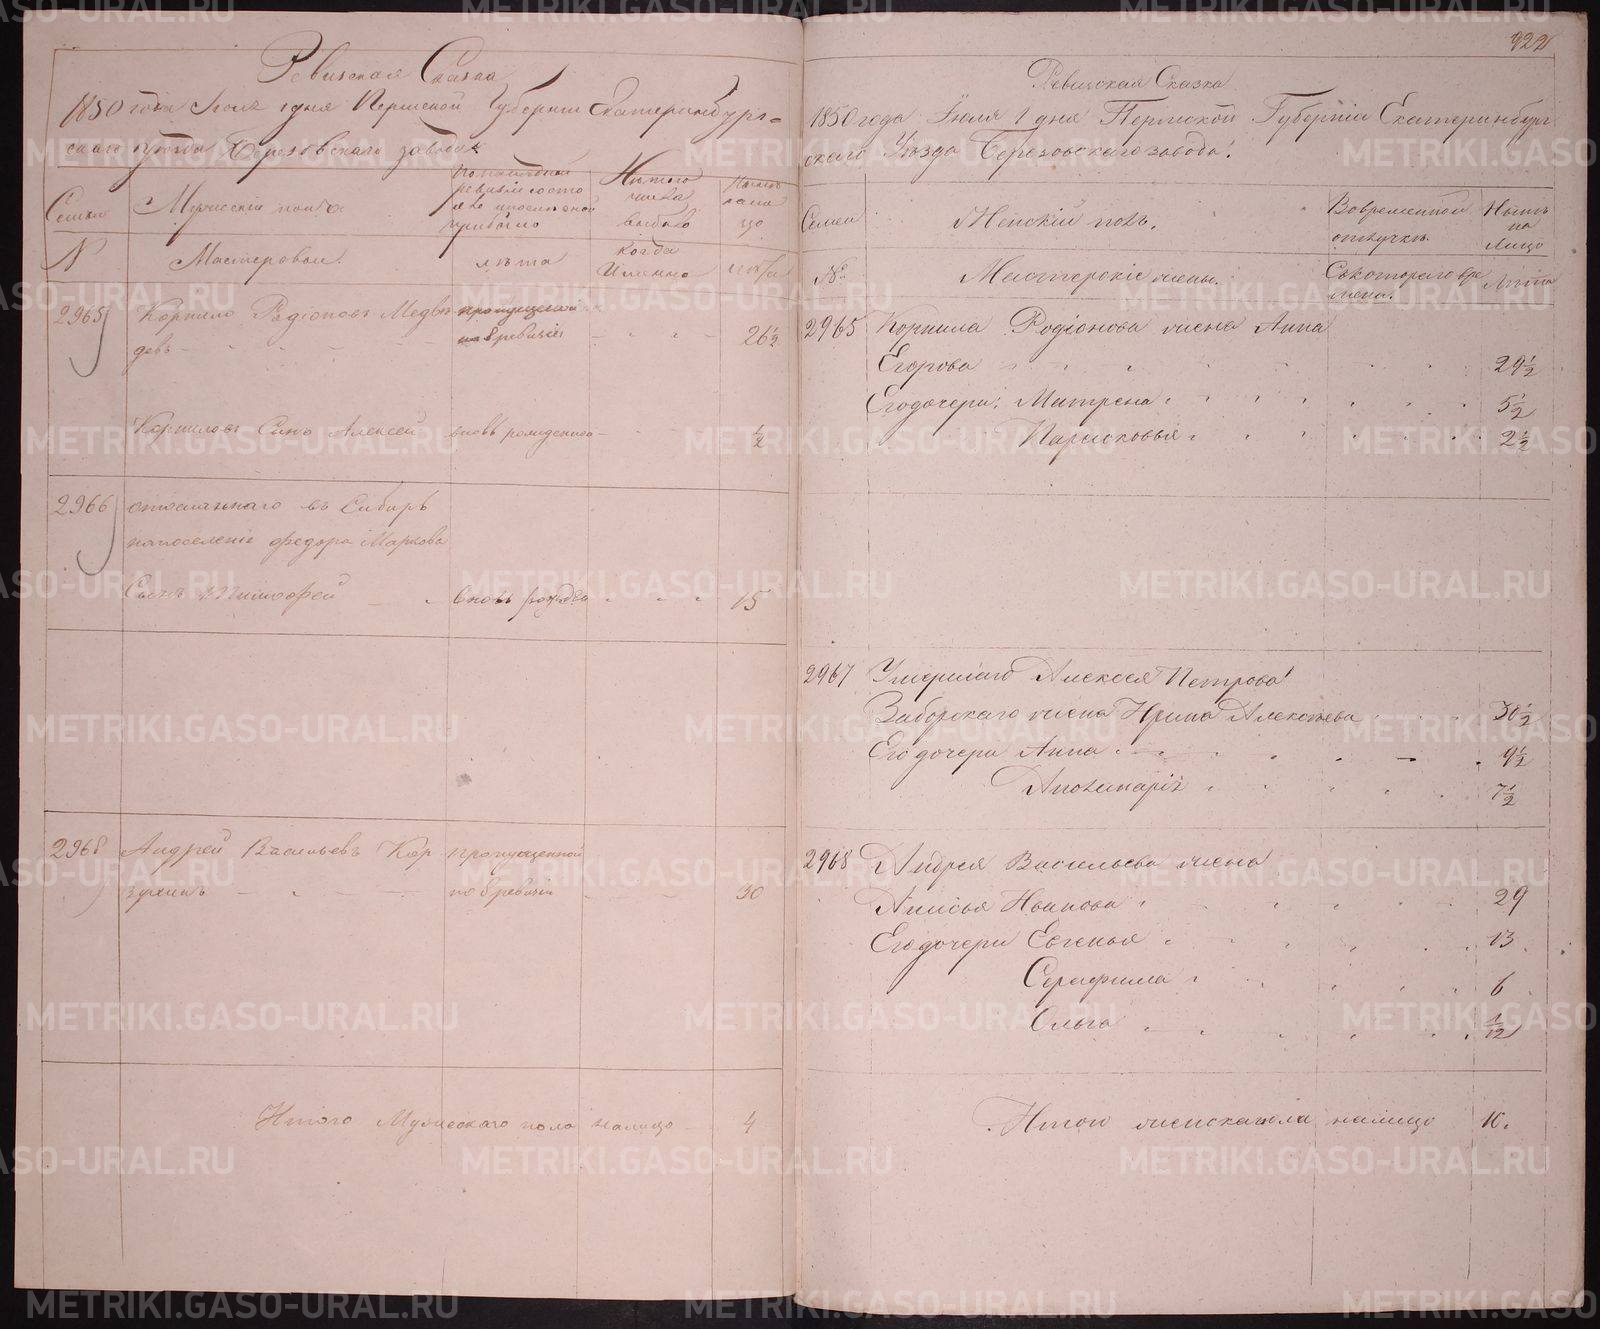 Ревизская Сказка
1850 года Июля 1 дня Пермской Губернии Екатеринбург=
скаго уезда Березовскаго завода
Семьи
Мужескій полъ
По последней
ревизіи состо
яло и после оной
прибыло
Изъ того
числа
выбыло
Ныне
на ли
цо
N
Мастеровые
лета
когда
Именно
лета
2965
Корнило Родіоновъ Медве
девъ
пропущенной
по 8 ревизіи
26½
Корниловъ Сынъ Алексей
вновь рожденной
½
2966
отосланнаго въ Сибирь
на поселеніе Федора Маркова
Сынъ Тимофей
вновь рожден
15
2968
Андрей Васильевъ Кор
зухинъ
пропущенной
по 8 ревизіи
30
Итого Мужескаго пола налицо
4
922
Ревизская Сказка
1850 года Іюля 1 дня Пермской Губерніи Екатеринбург
скаго Уѣзда Березовскаго завода.
Семьи
Женскій полъ.
Во временной
отлучкѣ
Нынѣ
на
Лицо
№
Мастерскіе жены.
Съ котораго вре
мени.
Лѣта
2965 Корнила Родіонова жена Анна
Егорова
29½
Его дочери: Матрена
5½
Парасковья
2½
2967 Умершаго Алексея Петрова
Заборскаго жена Ирина Алексеева
30½
Его дочери Анна
9½
Аполинарія
7½
2968 Андрея Васильева жена
Анисья Иванова
29
Его дочери Евгенья
13
Серафима
6
Ольга
1/12
Итого женска пола налицо
10.
METRIKI.GASO-URAL.RU